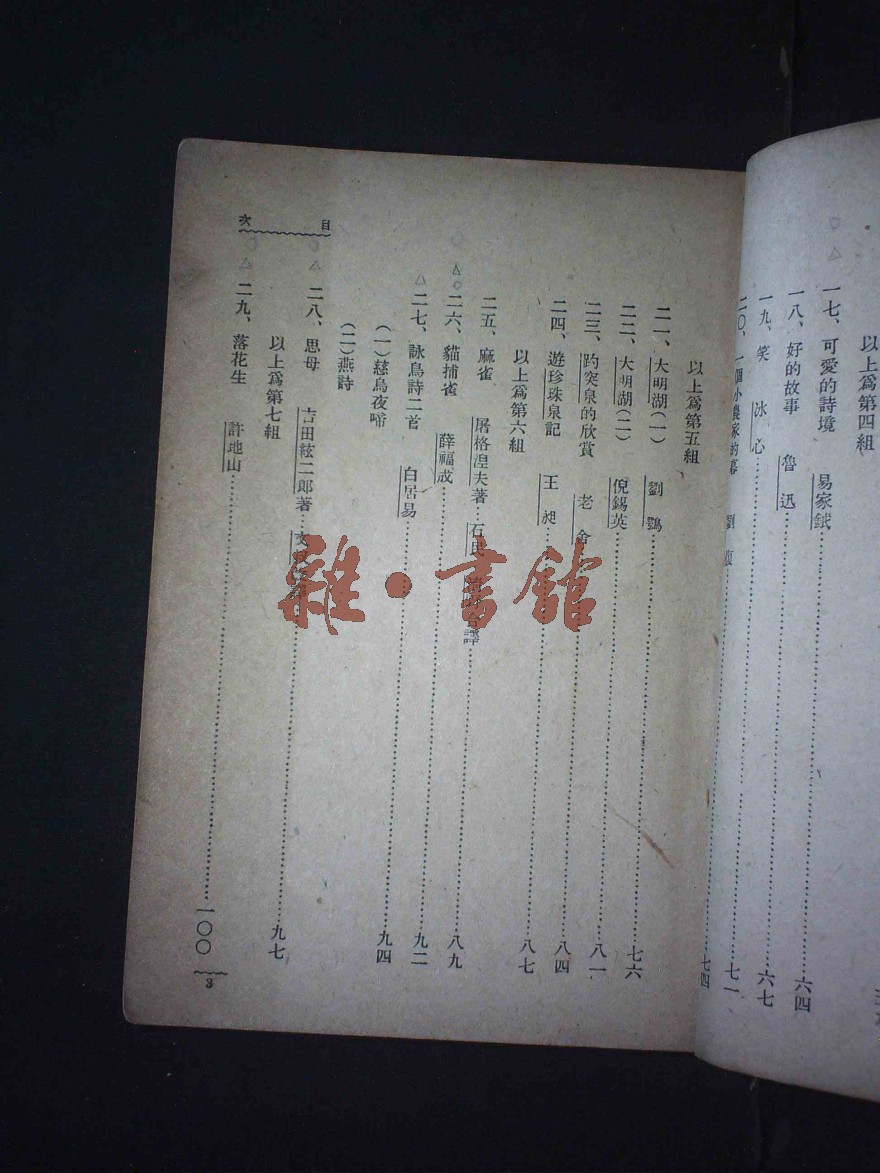 以上爲第四組
一七、可愛的詩境 易家鉞……六四
一八、好的故事 魯迅……六七
一九、笑 冰心……七一
二〇、一個小農家的暮 劉復……七四
以上爲第五組
二一、大明湖(一) 劉鶚……七六
二二、大明湖(二) 倪錫英……八一
二三、趵突泉的欣賞 老舍……八四
二四、遊珍珠泉記 王昶……八七
以上爲第六組
二五、麻雀 屠格涅夫著…石民 譯……八九
△○ 二六、貓捕雀 薛福成……九二
△ 二七、詠鳥詩二首 白居易……九四
(一)慈烏夜啼
(二)燕詩
二八、思母 吉田絃二郎著……九七
以上爲第七組
二九、落花生 許地山……一〇〇
目次
3
雜·書館